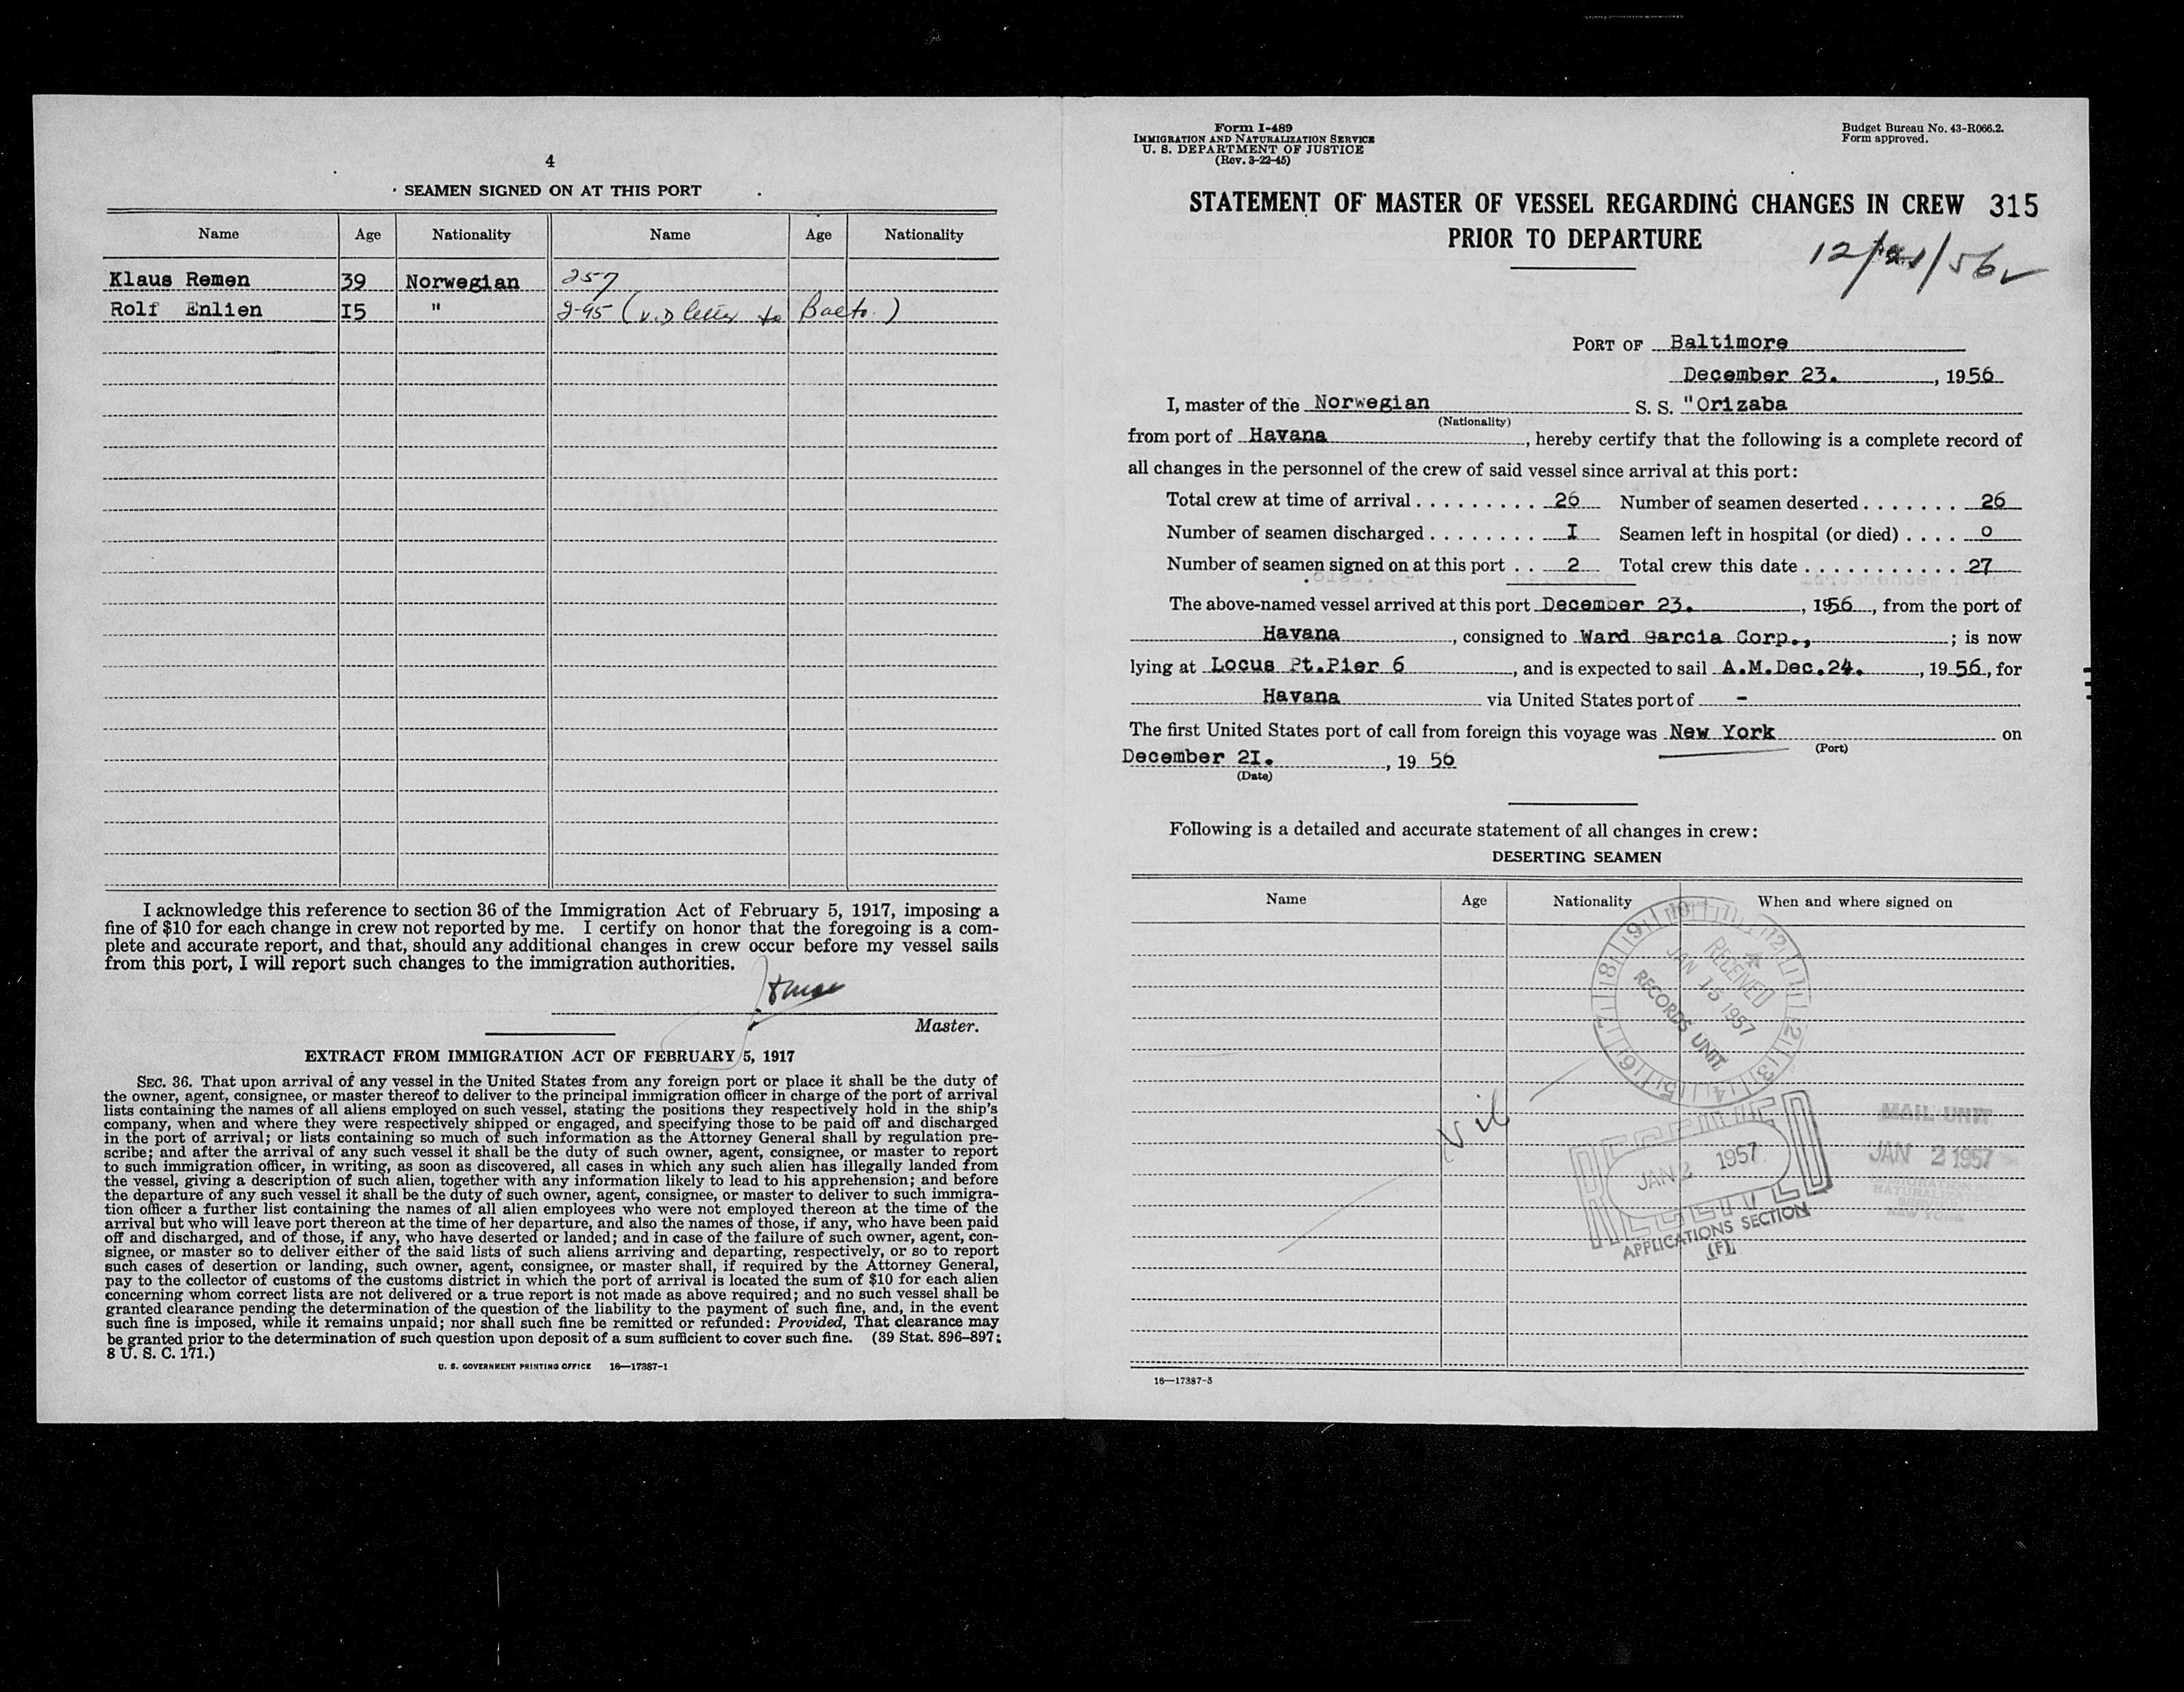 4
SEAMEN SIGNED ON AT THIS PORT
Name Age Nationality Name Age Nationality
Klaus Remen 39 Norwegian 257
Rolf Enlien I5 " 2-45 ( letter to Balto.)
I acknowledge this reference to section 36 of the Immigration Act of February 5, 1917, imposing a
fine of $10 for each change in crew not reported by me. I certify on honor that the foregoing is a com-
plete and accurate report, and that, should any additional changes in crew occur before my vessel sails
from this port, I will report such changes to the immigration authorities.
Master.
EXTRACT FROM IMMIGRATION ACT OF FEBRUARY 5, 1917
SEC. 36. That upon arrival of any vessel in the United States from any foreign port or place it shall be the duty of
the owner, agent, consignee, or master thereof to deliver to the principal immigration officer in charge of the port of arrival
lists containing the names of all aliens employed on such vessel, stating the positions they respectively hold in the ship's
company, when and where they were respectively shipped or engaged, and specifying those to be paid off and discharged
in the port of arrival; or lists containing so much of such information as the Attorney General shall by regulation pre-
scribe; and after the arrival of any such vessel it shall be the duty of such owner, agent, consignee, or master to report
to such immigration officer, in writing, as soon as discovered, all cases in which any such alien has illegally landed from
the vessel, giving a description of such alien, together with any information likely to lead to his apprehension; and before
the departure of any such vessel it shall be the duty of such owner, agent, consignee, or master to deliver to such immigra-
tion officer a further list containing the names of all alien employees who were not employed thereon at the time of the
arrival but who will leave port thereon at the time of her departure, and also the names of those, if any, who have been paid
off and discharged, and of those, if any, who have deserted or landed; and in case of the failure of such owner, agent, con-
signee, or master so to deliver either of the said lists of such aliens arriving and departing, respectively, or so to report
such cases of desertion or landing, such owner, agent, consignee, or master shall, if required by the Attorney General,
pay to the collector of customs of the customs district in which the port of arrival is located the sum of $10 for each alien
concerning whom correct lists are not delivered or a true report is not made as above required; and no such vessel shall be
granted clearance pending the determination of the question of the liability to the payment of such fine, and, in the event
such fine is imposed, while it remains unpaid; nor shall such fine be remitted or refunded: Provided, That clearance may
be granted prior to the determination of such question upon deposit of a sum sufficient to cover such fine. (39 Stat. 896–897;
8 U. S. C. 171.)
U. S. GOVERNMENT PRINTING OFFICE 16—17387-1
Form I-489
IMMIGRATION AND NATURALIZATION SERVICE
U. S. DEPARTMENT OF JUSTICE
(Rev. 3-22-45)
Budget Bureau No. 43-R066.2.
Form approved.
STATEMENT OF MASTER OF VESSEL REGARDING CHANGES IN CREW 315
PRIOR TO DEPARTURE
12/21/56
PORT OF Baltimore
December 23. , 1956
I, master of the Norwegian S. S. "Orizaba
(Nationality)
from port of Havana , hereby certify that the following is a complete record of
all changes in the personnel of the crew of said vessel since arrival at this port:
Total crew at time of arrival . . . . . . . . . . 26 Number of seamen deserted . . . . . . . 26
Number of seamen discharged . . . . . . . . I Seamen left in hospital (or died) . . . . 0
Number of seamen signed on at this port . . 2 Total crew this date . . . . . . . . . . . 27
The above-named vessel arrived at this port December 23. , 1956 , from the port of
Havana , consigned to Ward Garcia Corp., ; is now
lying at Locus Pt.Pier 6 , and is expected to sail A.M.Dec.24. , 1956, for
Havana via United States port of -
The first United States port of call from foreign this voyage was New York on
(Port)
December 2I. , 19 56
(Date)
Following is a detailed and accurate statement of all changes in crew:
DESERTING SEAMEN
Name Age Nationality When and where signed on
RECEIVED
JAN 15 1957
RECORDS UNIT
Nil
RECEIVED
JAN 2 1957
APPLICATIONS SECTION
(F)
MAIL UNIT
JAN 2 1957
NEW YORK
16—17387-3